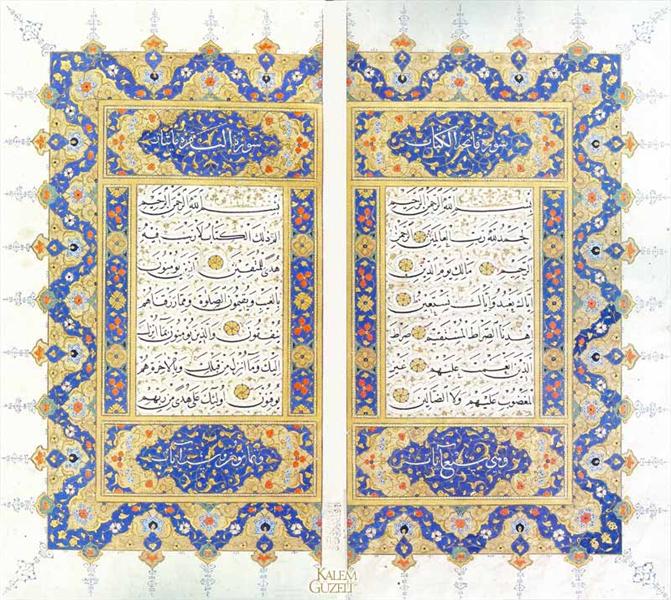 سورة فاتحة الكتاب
بسم الله الرحمن الرحيم
الحمد لله رب العالمين الرحمن
الرحيم مالك يوم الدين
اياك نعبد واياك نستعين
اهدنا الصراط المستقيم صراط
الذين انعمت عليهم غير
المغضوب عليهم ولا الضالين
وهي سبع آيات
سورة البقرة مائتان
بسم الله الرحمن الرحيم
الم ذلك الكتاب لا ريب فيه
هدى للمتقين الذين يؤمنون
بالغيب ويقيمون الصلوة ومما رزقناهم
ينفقون والذين يؤمنون بما انزل
اليك وما انزل من قبلك وبالآخرة هم
يوقنون اولئك على هدى من ربهم
وثمانون وست آيات
KALEM
GÜZELİ